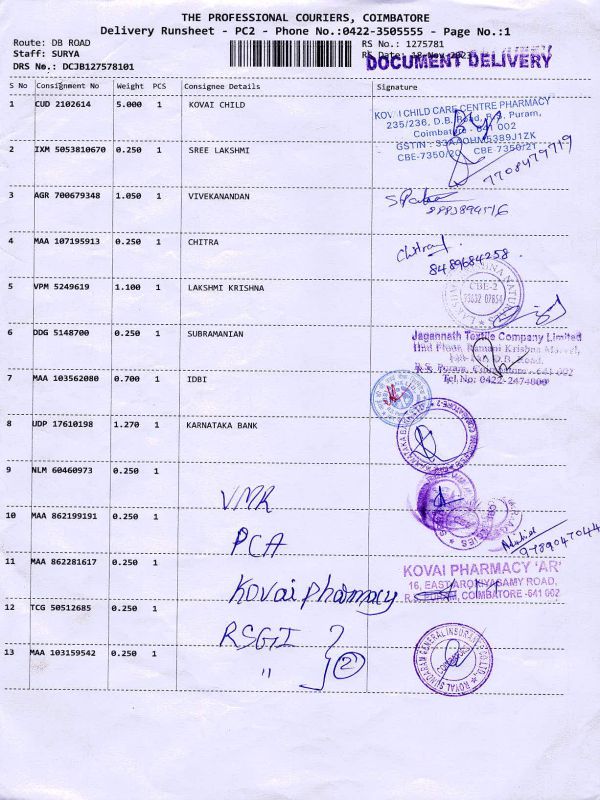 THE PROFESSIONAL COURIERS, COIMBATORE
Delivery Runsheet - PC2 - Phone No.:0422-3505555 - Page No.:1
Route: DB ROAD
RS No.: 1275781
Staff: SURYA
RS Date: 18-Nov-202
DOCUMENT DELIVERY
DRS No.: DCJB127578101
S No Consignment No Weight PCS Consignee Details Signature
1 CUD 2102614 5.000 1 KOVAI CHILD
KOVAI CHILD CARE CENTRE PHARMACY
235/236, D.B. Road, R.S. Puram,
Coimbatore - 641 002
CBE-7350/20 CBE-7350/21
2 IXM 5053810670 0.250 1 SREE LAKSHMI
7708479719
3 AGR 700679348 1.050 1 VIVEKANANDAN
4 MAA 107195913 0.250 1 CHITRA
8489684258
5 VPM 5249619 1.100 1 LAKSHMI KRISHNA
CBE-2
93632 07854
6 DDG 5148700 0.250 1 SUBRAMANIAN
Jagannath Textile Company Limited
R.S. Puram, Coimbatore - 641 002
Tel.No: 0422-2474000
7 MAA 103562080 0.700 1 IDBI
8 UDP 17610198 1.270 1 KARNATAKA BANK
9 NLM 60460973 0.250 1
VMR
10 MAA 862199191 0.250 1 PCA
9789047044
11 MAA 862281617 0.250 1 Kovai pharmacy
KOVAI PHARMACY 'AR'
16, EAST AROKIYASAMY ROAD,
R.S. PURAM, COIMBATORE -641 002
12 TCG 50512685 0.250 1 RSGI
13 MAA 103159542 0.250 1 " 2
ROYAL SUNDARAM GENERAL INSURANCE CO. LTD.
COIMBATORE